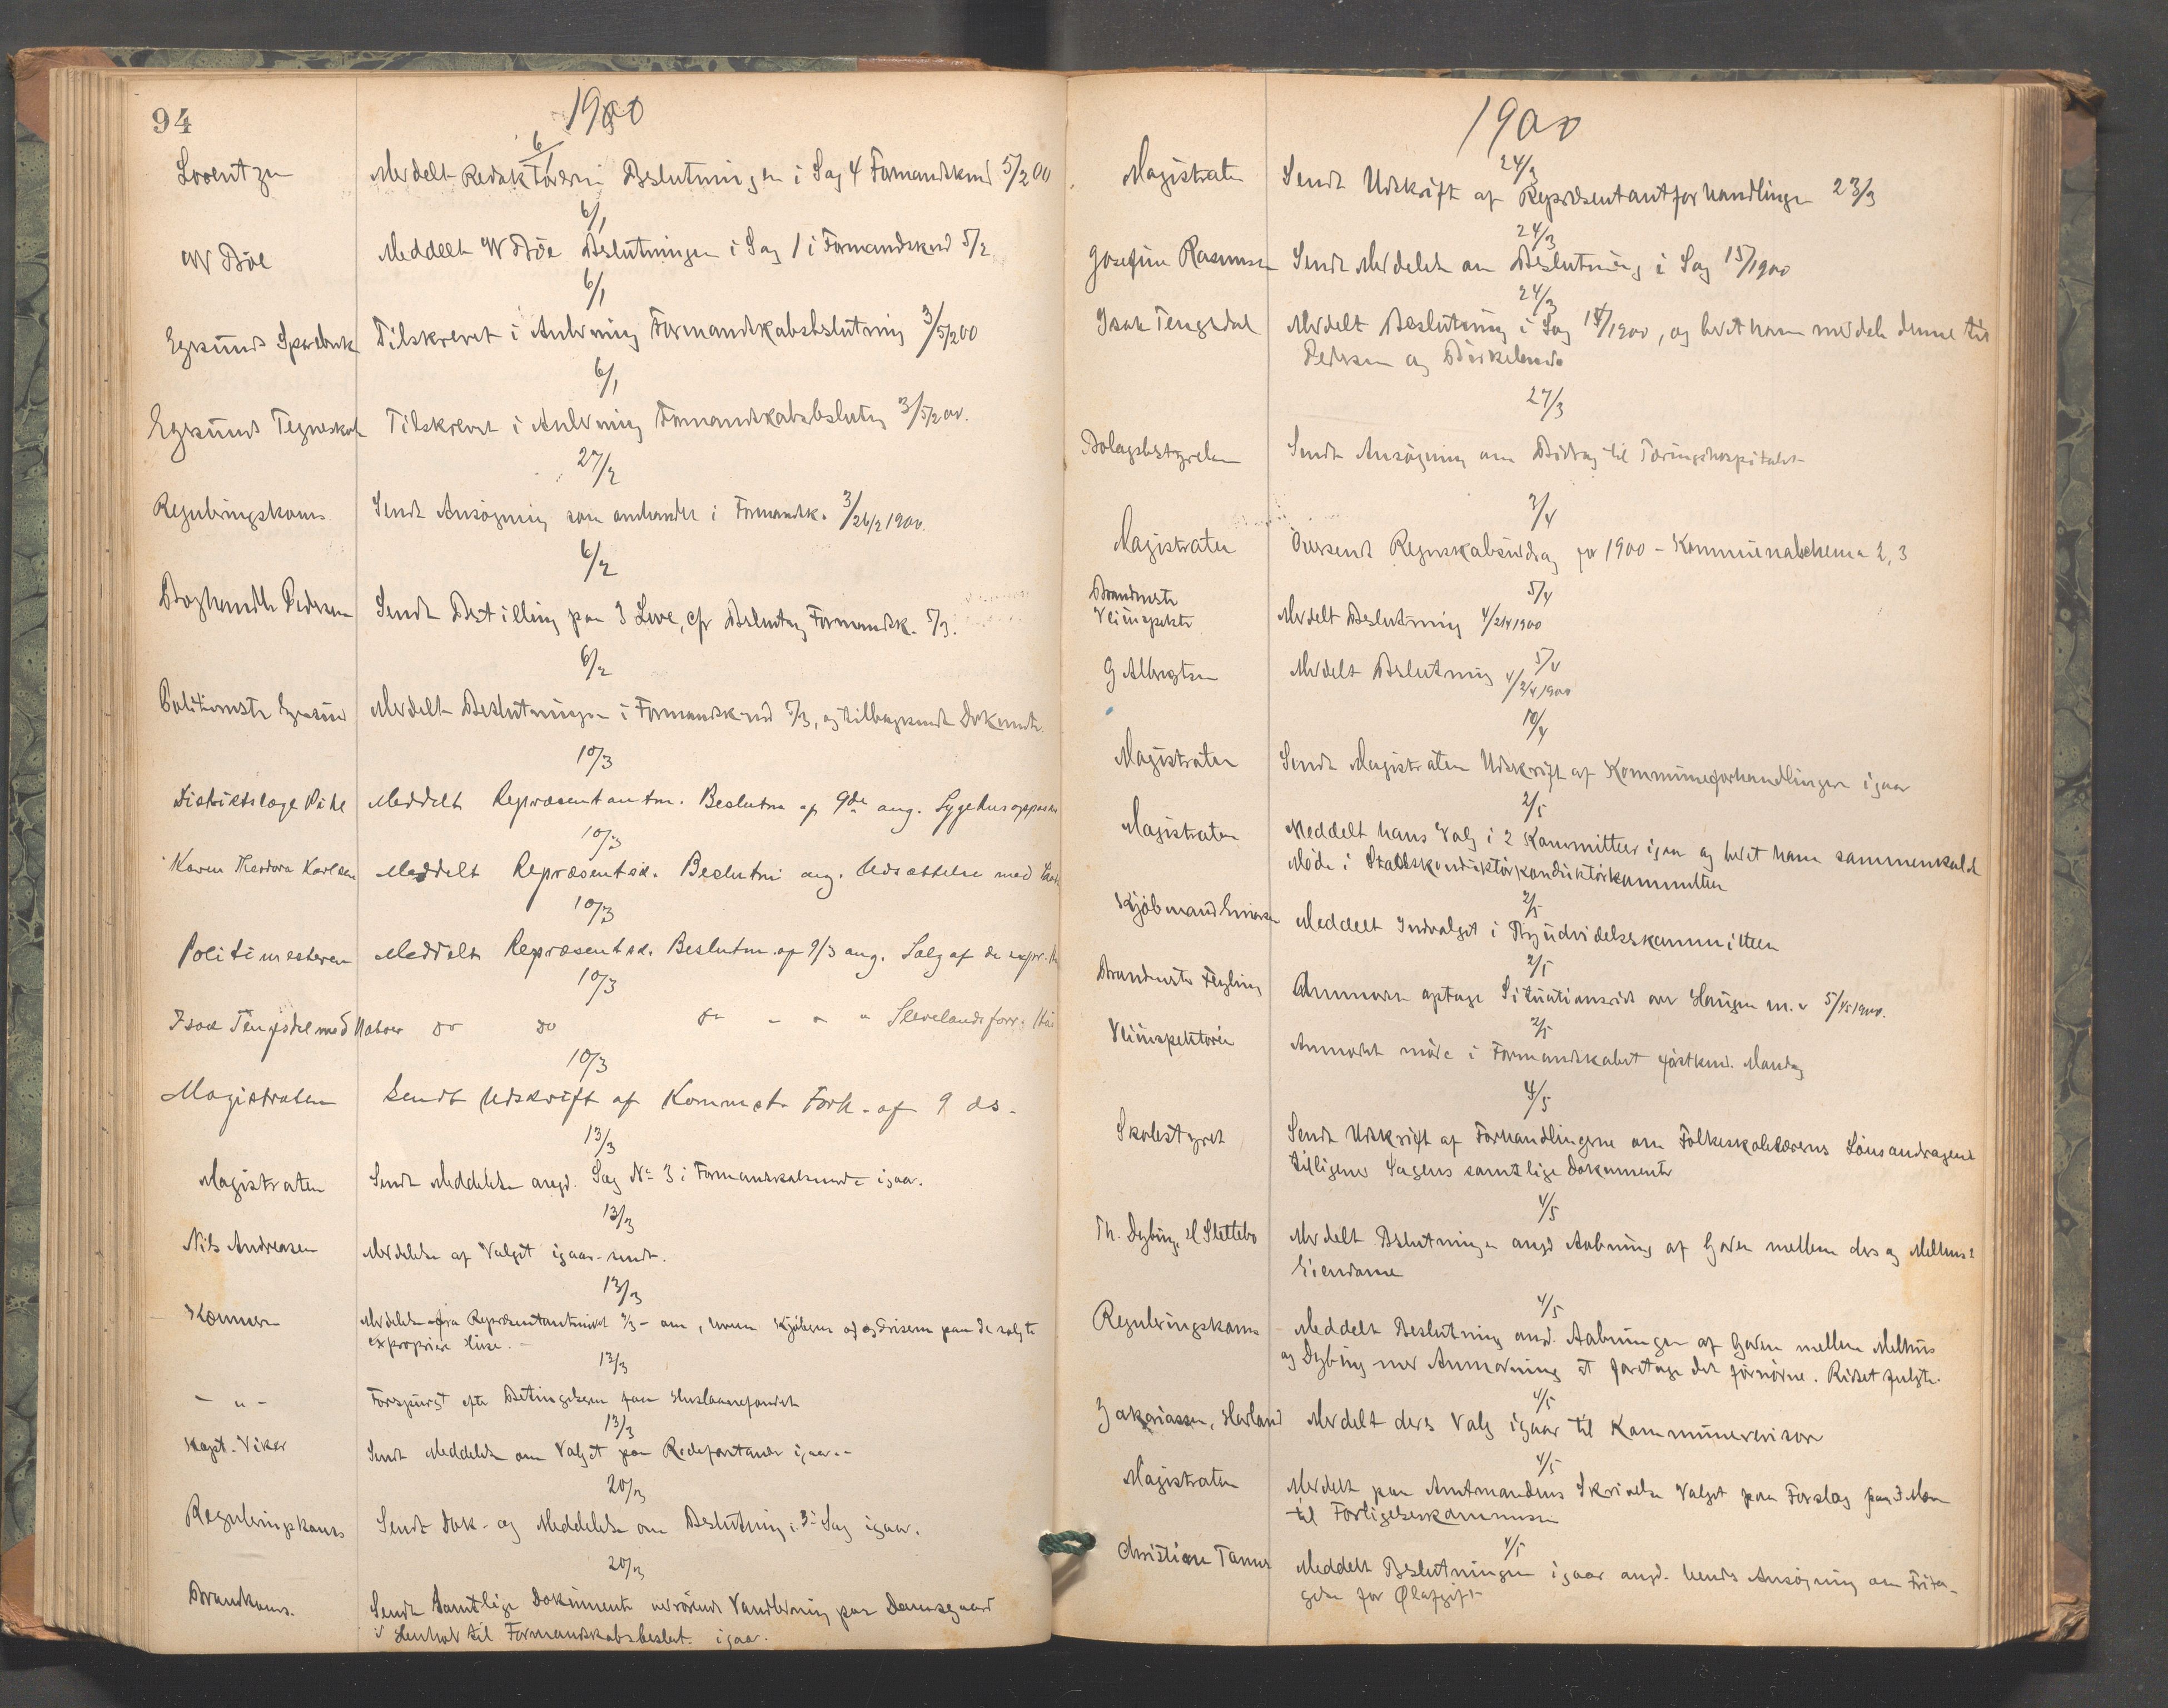 94
1900
6/1
Lorentzen Meddelt Redaktøren Beslutningen i Sag 4 Formandskmd 5/2 00
6/1
W Böe Meddelt W Böe Beslutningen i Sag 1 i Formandskmd 5/2
6/1
Egersunds Sparebank Tilskrevet i Anledning Formandskabsbeslutning 3/5/2 00
6/1
Egersunds Tegneskole Tilskrevet i Anledning Formandskabsbeslutn 3/5/2 00.
27/2
Reguleringskoms. Sendt Ansøgning som omhandlet i Formandsk. 3/26/2 1900.
6/2
Boghandler Pedersen Sendt Bestilling paa 3 Love, cfr Beslutng Formandsk. 5/3.
6/2
Politimester Egersund Meddelt Beslutningen i Formandskmd 5/3, og tilbagesendt Dokumenter.
10/3
Distriktslæge Pihl Meddelt Repræsentantm. Beslutn af 9de ang. Sygehus
10/3
Karen Theodora Karlsen Meddelt Repræsentsk. Beslutn ang. Udsættelse med
10/3
Politimesteren Meddelt Repræsentsk. Beslutn. af 9/3 ang. Salg af de expr.
10/3
Isak Tengsdal med Naboer do do do - " " Slevelandsforr.
10/3
Magistraten Sendt Udskrift af Kommst. Forh. af 9 ds.
13/3
Magistraten Sendt Meddelelse angd. Sag No 3 i Formandskabsmøde igaar.
13/3
Nils Andreasen Meddelelse af Valget igaar sendt.
13/3
Kæmner Meddelelse fra Repræsentantmødet 9/3 - om, hvem Kjøberne og Priserne paa de solgte
exproprier Huse. -
13/3
- " - Forspurgt efter Betingelserne fra Huslaanefondet
13/3
Kapt. Viker Sendt Meddelelse om Valget paa Rodeforstander igaar. -
20/3
Reguleringskoms Sendt Dok. og Meddelelse om Beslutning i 3' Sag igaar.
20/3
Brandkoms. Sendt Samtlige Dokumenter vedrørende Vandledning paa Damsgaard
i Henhold til Formandskabsbeslut. igaar.
1900
24/3
Magistraten Sendt Udskrift af Repræsentantforhandlingen 23/3
24/3
Josefine Rasmussen Sendt Meddelelse om Beslutning i Sag 15/1900
24/3
Isak Tengsdal Meddelt Beslutning i Sag 14/1900, og bedt ham meddele denne til
Pedersen og Birkeland
27/3
Bolagsbestyrelsen Sendt Ansøgning om Bidrag til Tæringshospitalet
3/4
Magistraten Oversendt Regnskabsuddrag for 1900 - Kommunalschema 2, 3
5/4
Brandmester
Veiinspektør Meddelt Beslutning 4/2/4 1900
5/4
G Albregtsen Meddelt Beslutning 4/2/4 1900
10/4
Magistraten Sendt Magistraten Udskrift af Kommuneforhandlingen igaar
2/5
Magistraten Meddelt hans Valg i 2 Kommitteer igaar og bedt ham sammenkalde
Møde i Stadskonduktørkonduktørkommitteen
2/5
Kjøbmand Meddelt Indvalget i Byudvidelseskommitteen
2/5
Brandmester Feyling Anmodet optage Situationsrids over Haugen m. v 5/1/5 1900.
2/5
Veiinspektøren Anmodet møde i Formandskabet førstkmd. Mandag
4/5
Skolestyret Sendt Udskrift af Forhandlingerne om Folkeskolelærerens Lønsandragende
tilligemed Sagens samtlige Dokumenter
4/5
Th. Dybing, H Slettebø Meddelt Beslutningen angd Aabning af Gaden mellem ders og Melhus's
Eiendomme
4/5
Reguleringskoms Meddelt Beslutning angd. Aabningen af Gaden mellem Melhus
og Dybing med Anmodning at foretage det fornødne. Ridset fulgte.
4/5
Zakariassen, Hovland Meddelt deres Valg igaar til Kommunerevisor
4/5
Magistraten Meddelt paa Amtmandens Skrivelse Valget paa Forslag paa 3 Mæn
til Forligelseskommissær
4/5
Christiane Meddelt Beslutningen igaar angd. hendes Ansøgning om Frita-
gelse for Ølafgift